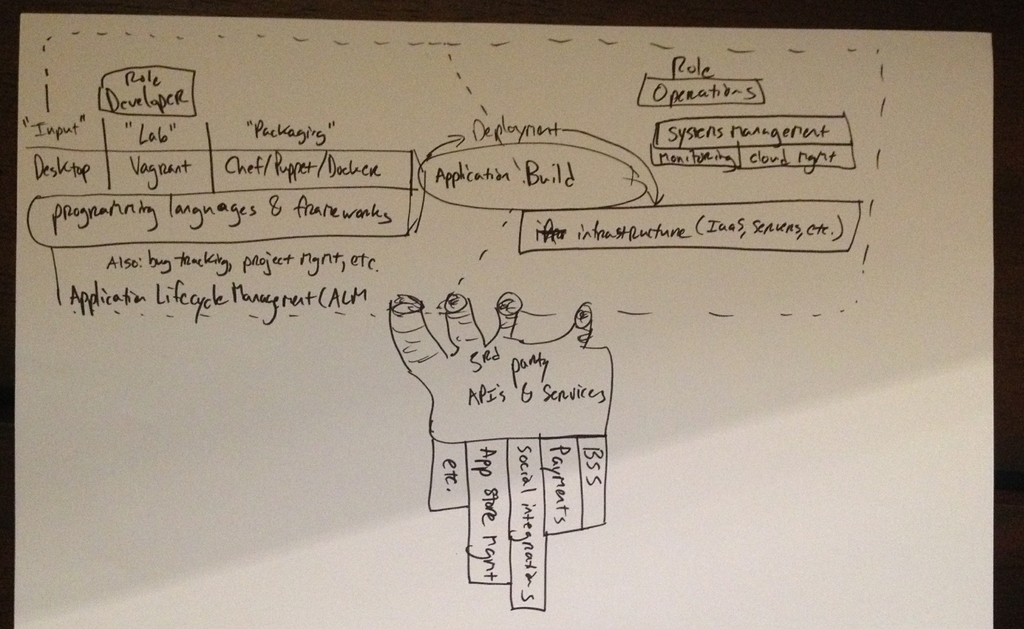 Role
Developer
"Input"
"Lab"
"Packaging"
Desktop
Vagrant
Chef/Puppet/Docker
programming languages & frameworks
Also: bug tracking, project mgmt, etc.
Application Lifecycle Management (ALM
Deployment
Application Build
Role
Operations
Systems Management
Monitoring
cloud mgmt
infrastructure (IaaS, servers, etc.)
3rd party
API's & Services
etc.
App Store Mgmt
Social integrations
Payments
BSS